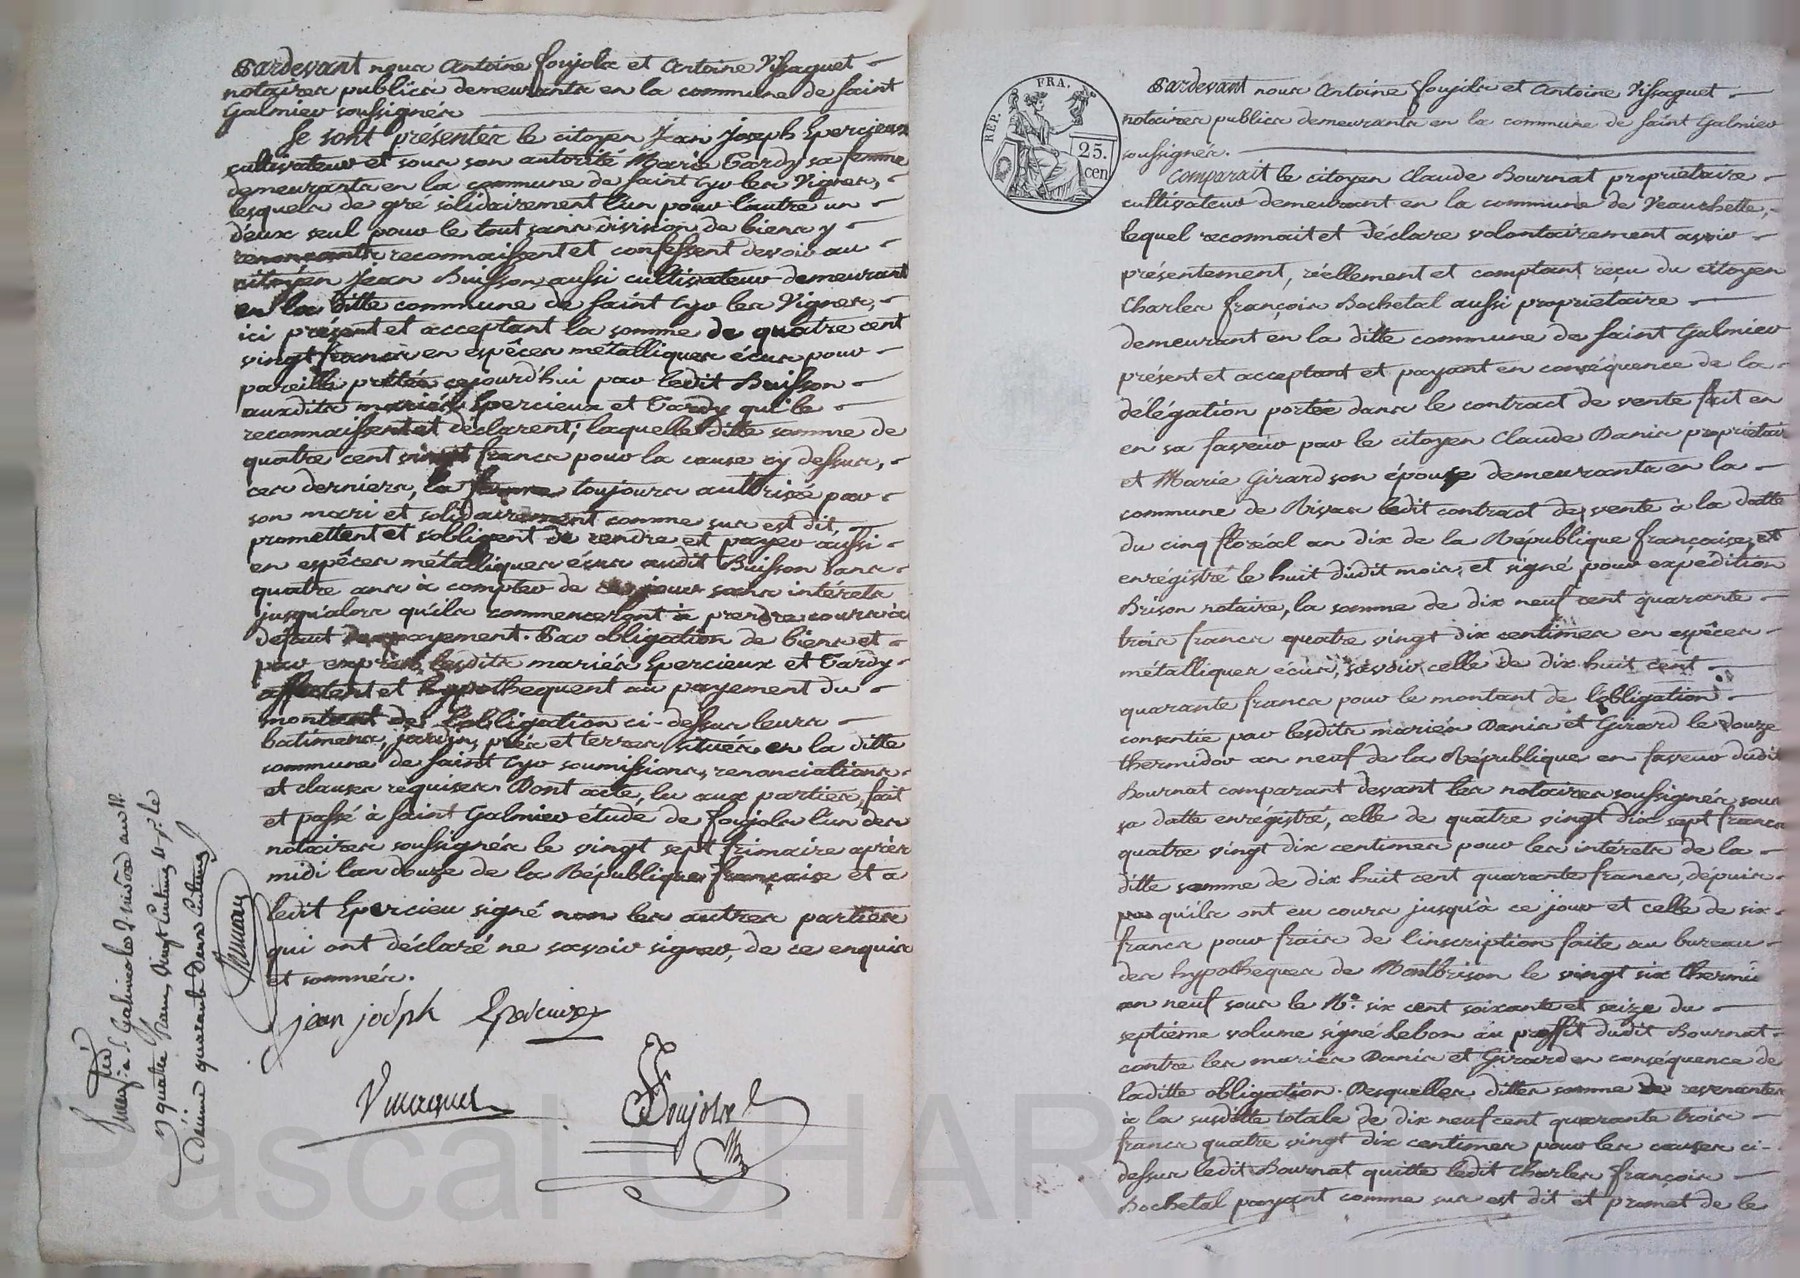 Pardevant nous Antoine Foujols et Antoine Vissaguet
notaires publics demeurants en la commune de saint
Galmier soussignés
Se sont présentés le citoyen Jean Joseph Epercieux
cultivateur et sous son autorité Marie Tardy sa femme
demeurants en la commune de saint Cyr les Vignes,
lesquels de gré solidairement l'un pour l'autre un
d'eux seul pour le tout sans division de biens y
renonçants reconnaissent et confessent devoir au
citoyen Jean Buisson aussi cultivateur demeurant
en la ditte commune de saint Cyr les Vignes,
ici présent et acceptant la somme de quatre cent
vingt francs en espêces métalliques écus pour
pareille prêtée cejourd'hui par ledit Buisson
auxdits mariés Epercieux et Tardy qui le
reconnaissent et déclarent; laquelle ditte somme de
quatre cent vingt francs pour la cause cy dessus,
ces derniers, la femme toujours autorisée par
son mari et solidairement comme sus est dit
promettent et s'obligent de rendre et payer aussi
en espêces métalliques écus audit Buisson dans
quatre ans à compter de ce jour sans intérets
jusqu'alors qu'ils commenceront à prendre cours à
défaut de payement. Par obligation de biens et
par exprès lesdits mariés Epercieux et Tardy
affectent et hypothequent au payement du
montant de l'obligation ci-dessus leurs
batimens, jardin, prés et terres situés en la ditte
commune de saint Cyr soumissions, renonciations
et clauses requises. Dont acte, lu aux parties, fait
et passé à saint Galmier étude de Foujols l'un des
notaires soussignés le vingt sept frimaire après
midi l'an douze de la République française et a
ledit Epercieu signé non les autres parties
qui ont déclaré ne savoir signer, de ce enquis
et sommés.
jean joseph Epercieux
Vissaguet
Foujols
à S. Galmier le 2 nivose an 12
quatre francs vingt centimes
décime quarante deux centimes
REP. FRA.
25.
cen
Pardevant nous Antoine Foujols et Antoine Vissaguet
notaires publics demeurants en la commune de saint Galmier
soussignés.
Comparait le citoyen Claude Bournat propriétaire
cultivateur demeurant en la commune de Veauchette,
lequel reconnait et déclare volontairement avoir
présentement, réellement et comptant reçu du citoyen
Charles françois Bochetal aussi propriétaire
demeurant en la ditte commune de saint Galmier
présent et acceptant et payant en conséquence de la
délégation portée dans le contract de vente fait en
en sa faveur par le citoyen Claude Danis propriétair
et Marie Girard son épouse demeurants en la
commune de Rivas ledit contract de vente à la datte
du cinq floréal an dix de la République française, et
enrégistré le huit dudit mois, et signé pour expédition
Brison notaire, la somme de dix neuf cent quarante
trois francs quatre vingt dix centimes en espêces
métalliques écus, savoir, celle de dix huit cent
quarante francs pour le montant de l'obligation
consentie par lesdits mariés Danis et Girard le douze
thermidor an neuf de la République en faveur dudit
Bournat comparant devant les notaires soussignés, sous
sa datte enrégistré, celle de quatre vingt dix sept francs
quatre vingt dix centimes pour les intérets de la
ditte somme de dix huit cent quarante francs, dépuis
qu'ils ont eu cours jusqu'à ce jour et celle de six
francs pour frais de l'inscription faite au bureau
des hypotheques de Montbrison le vingt six thermi
an neuf sous le N.o six cent soixante et seize du
septième volume signé Lebon au proffit dudit Bournat
contre les mariés Danis et Girard en conséquence de
laditte obligation. Desquelles dittes somme de revenantes
à la susditte totale de dix neuf cent quarante trois
francs quatre vingt dix centimes pour les causes ci-
dessus ledit Bournat quitte ledit Charles françois
Bochetal payant comme sus est dit et promet de le
Pascal CHAR